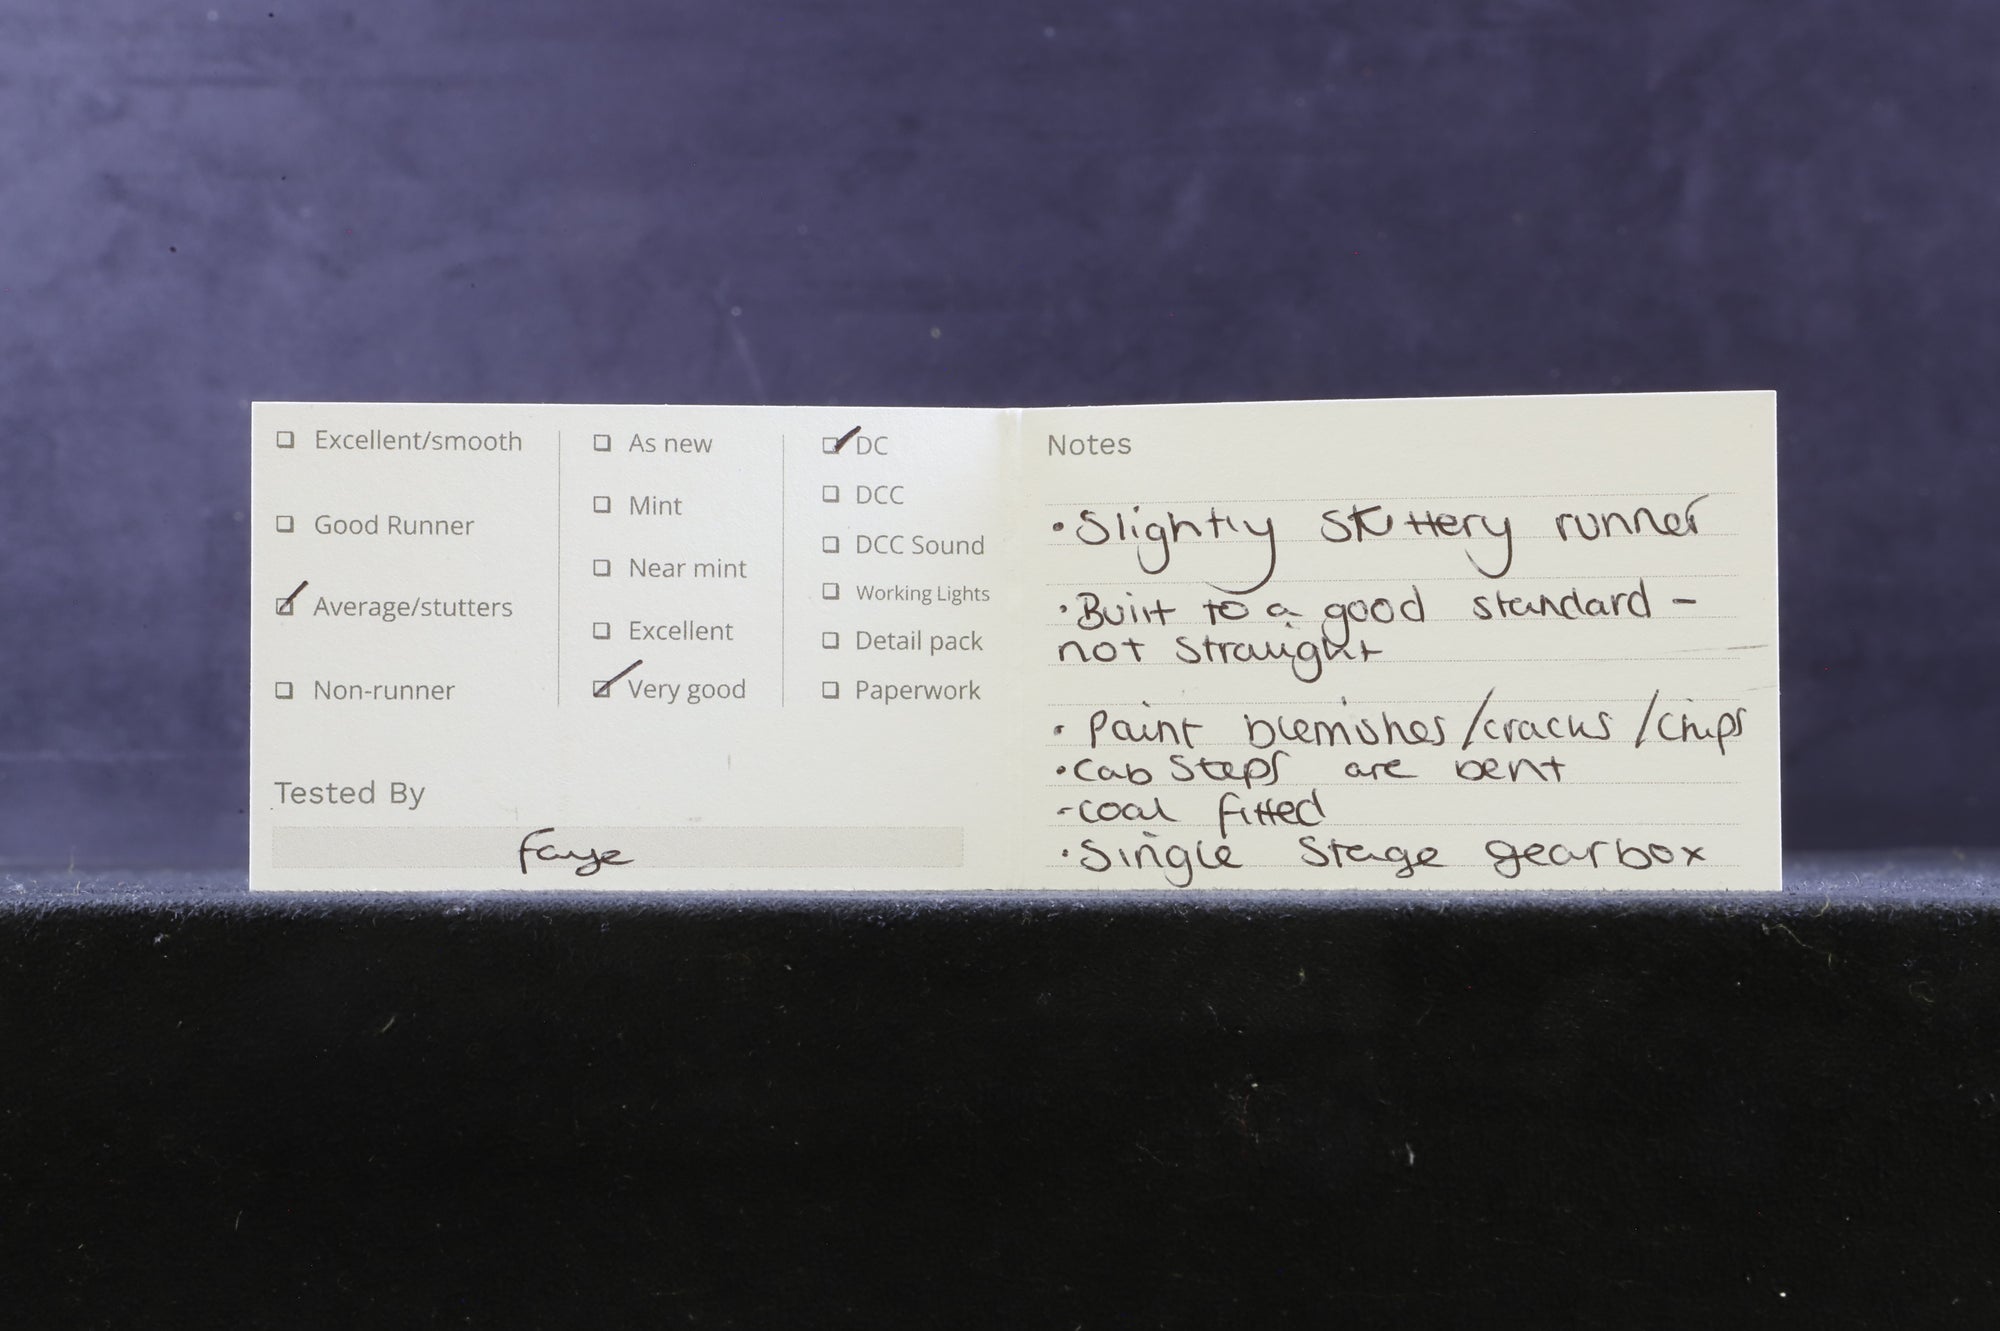 ☐ Excellent/smooth
☐ Good Runner
☑ Average/stutters
☐ Non-runner
☐ As new
☐ Mint
☐ Near mint
☐ Excellent
☑ Very good
☑ DC
☐ DCC
☐ DCC Sound
☐ Working Lights
☐ Detail pack
☐ Paperwork
Tested By
Faye
Notes
• Slightly stuttery runner
• Built to a good standard -
not straight
• Paint blemishes/cracks/chips
• Cab Steps are bent
- coal fitted
• Single Stage gearbox